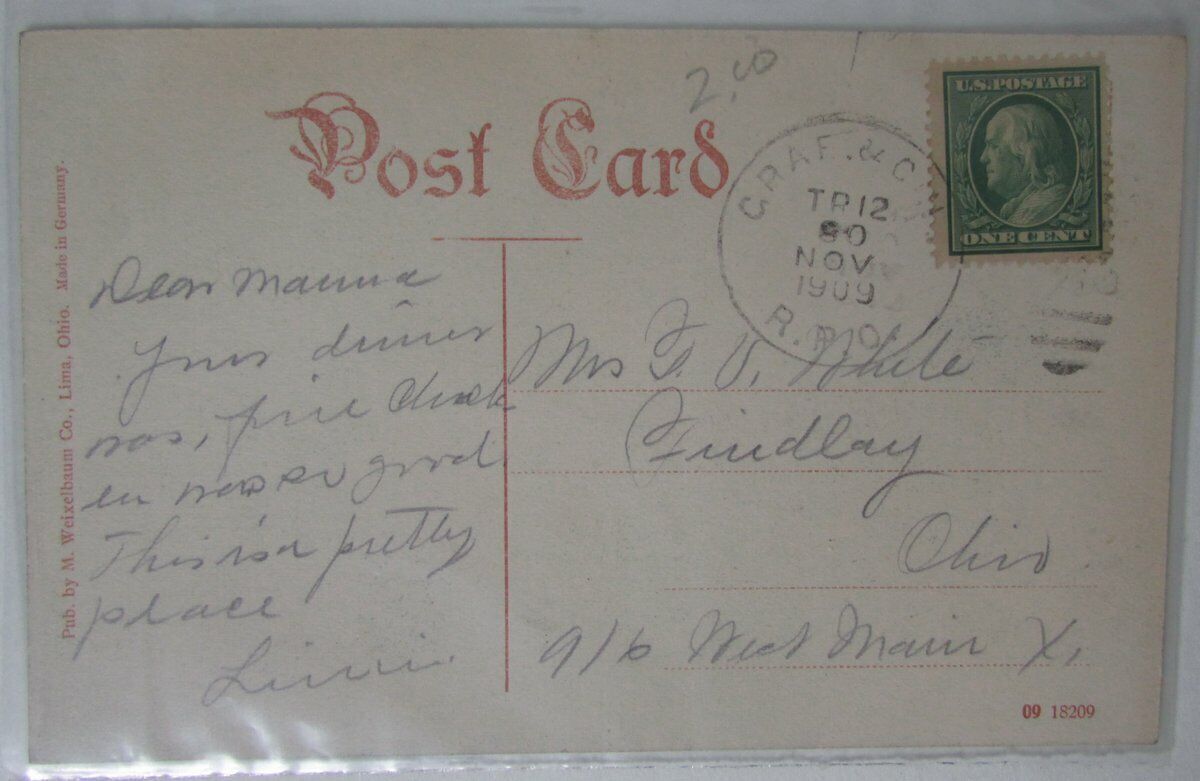 2.00
Post Card
U.S. POSTAGE
ONE CENT
GRAF. & CIN
TR12
30
NOV
1909
R.P.O.
Pub. by M. Weixelbaum Co., Lima, Ohio. Made in Germany.
Dear Mamma
Your dinner
was, fine Chick
en was so good
This is a pretty
place
Mrs F. D. White
Findlay
Ohio
916 West Main X,
09 18209